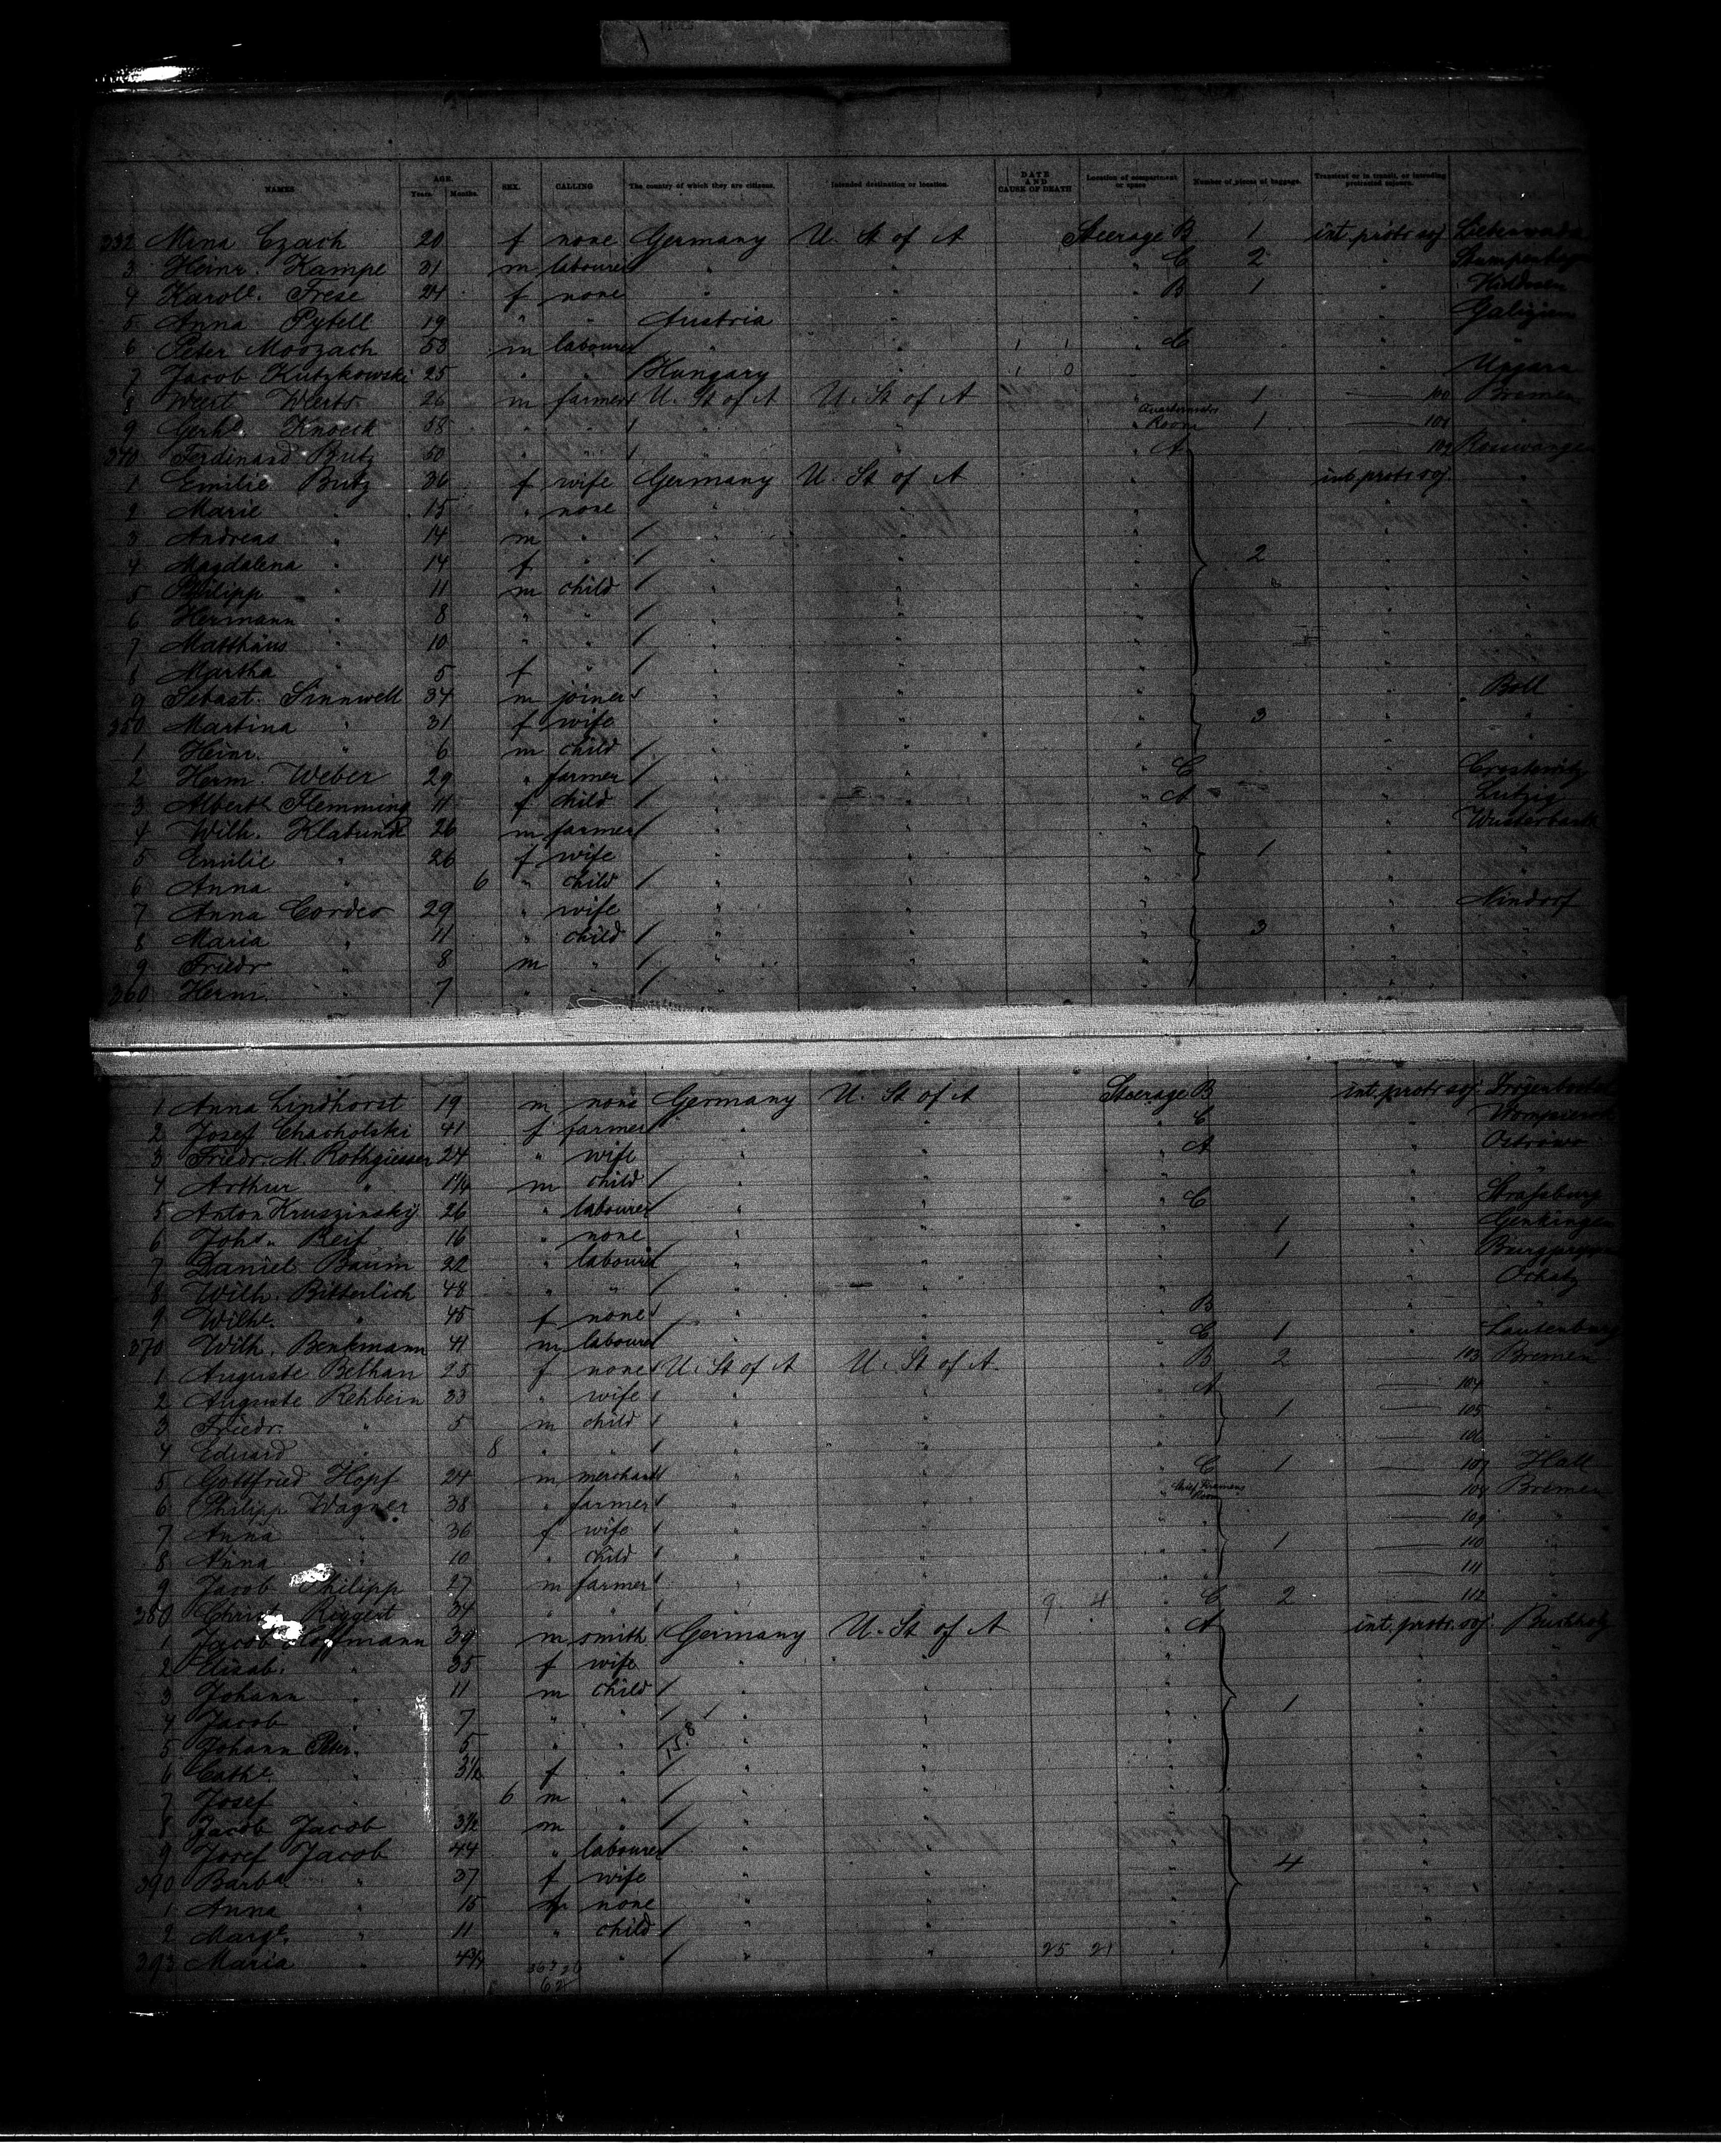 NAMES AGE. Years. Months. SEX. CALLING The country of which they are citizens. Intended destination or location. DATE AND CAUSE OF DEATH Location of compartment or space Number of pieces of baggage. Transient or in transit, or intending protracted sojourn.
332 Mina Czach 20 f none Germany U. St of A Steerage B 1 int. protr soj
3 Heinr. Kampe 31 m labourer " " " C 2 "
4 Karole. Frese 24 f none " " " B 1 "
5 Anna Pytell 19 " " Austria " " " Galizien
6 Peter Moozach 53 m labourer " " " C "
7 Jacob Kutzkowski 25 " " Hungary " " " Ungarn
8 Wert Werts 26 m farmer U. St of A U. St of A " 1 100 Bremen
9 Gerhd. Knoeck 58 " " " " " Quartermasters Room 1 101
340 Ferdinand Butz 50 " " " " " A 102
1 Emilie Butz 36 f wife Germany U. St of A " int. protr soj "
2 Marie " 15 " none " " " "
3 Andreas " 14 m " " " " "
4 Magdalena " 14 f " " " " 2 "
5 Philipp " 11 m child " " " "
6 Hermann " 8 " " " " " "
7 Matthäus " 10 " " " " " "
8 Martha " 5 f " " " " "
9 Sebast. Sinnwell 34 m joiner " " " " Boll
350 Martina " 31 f wife " " " 3 " "
1 Heinr. " 6 m child " " " " "
2 Herm. Weber 29 " farmer " " " C "
3 Alberth Flemming 11 f child " " " A "
4 Wilh. Klabunde 26 m farmer " " " "
5 Emilie " 26 f wife " " " 1 " "
6 Anna " 6 " child " " " " "
7 Anna Cordes 29 " wife " " " " Nindorf
8 Maria " 11 " child " " " 3 " "
9 Friedr " 8 m " " " " " "
360 Herm. " 7 " " " " " " "
1 Anna Lindhorst 19 m none Germany U. St of A Steerage B int. protr soj
2 Josef Chacholski 41 f farmer " " " C "
3 Friedr. M. Rothgiesser 24 " wife " " " A " Ostrowo
4 Arthur " m child " " " "
5 Anton Kruszinsky 26 " labourer " " " C " Strassburg
6 Johs. Reif 16 " none " " " 1 " Genkingen
7 Daniel Baum 22 " labourer " " " 1 "
8 Wilh. Bitterlich 48 " " " " " " Oschatz
9 Wilhe. " 45 f none " " " B "
370 Wilh. Benkmann 41 m labourer " " " C 1 " Lautenburg
1 Auguste Belhan 25 f none U. St of A U. St of A " B 2 103 Bremen
2 Auguste Rehbein 33 " wife " " " A 104 "
3 Friedr. " 5 m child " " " 1 105 "
4 Eduard " 8 " " " " " 106 "
5 Gottfried Hopf 24 m merchant " " " C 1 107 Hall
6 Philipp Wagner 38 " farmer " " " Chief Firemens Room 108 Bremen
7 Anna " 36 f wife " " " " 109 "
8 Anna " 10 " child " " " " 1 110 "
9 Jacob Philipp 27 m farmer " " " " 111 "
380 Christ. Riggert 34 " " " " 9 4 " C 2 112 "
1 Jacob Hoffmann 39 m smith Germany U. St of A " A int. protr. soj. Buchholz
2 Elisab. " 35 f wife " " " " "
3 Johann " 11 m child " " " " "
4 Jacob " 7 " " " " " 1 " "
5 Johann Petr. " 5 " " " " " " "
6 Cathe. " 3½ f " " " " " "
7 Josef " 6 m " " " " " "
8 Jacob Jacob 3½ m " " " " " "
9 Josef Jacob 44 " labourer " " " " "
390 Barba. " 37 f wife " " " 4 " "
1 Anna " 15 f none " " " " "
2 Margt. " 11 " child " " " " "
393 Maria " 4¾ " " " " 25 21 " " "